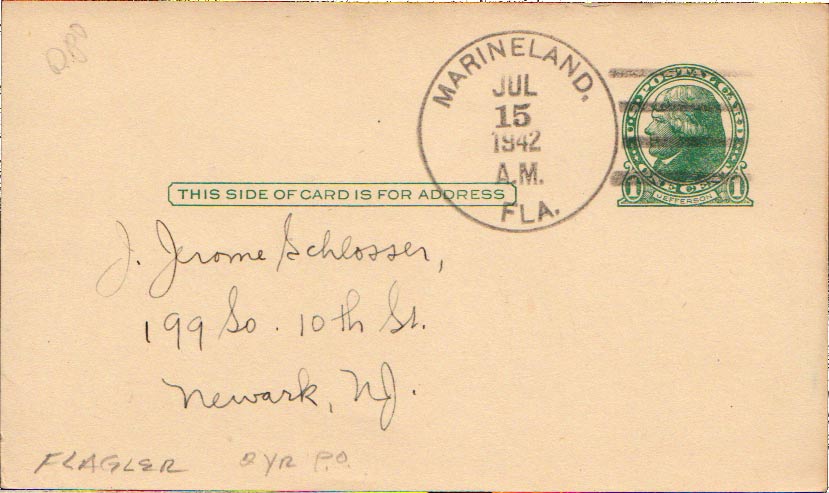 DPO
MARINELAND,
JUL
15
1942
A.M.
FLA.
U.S. POSTAL CARD
ONE CENT
1 JEFFERSON 1
THIS SIDE OF CARD IS FOR ADDRESS
J. Jerome Schlosser,
199 So. 10th St.
Newark, NJ.
FLAGLER 2 YR P.O.